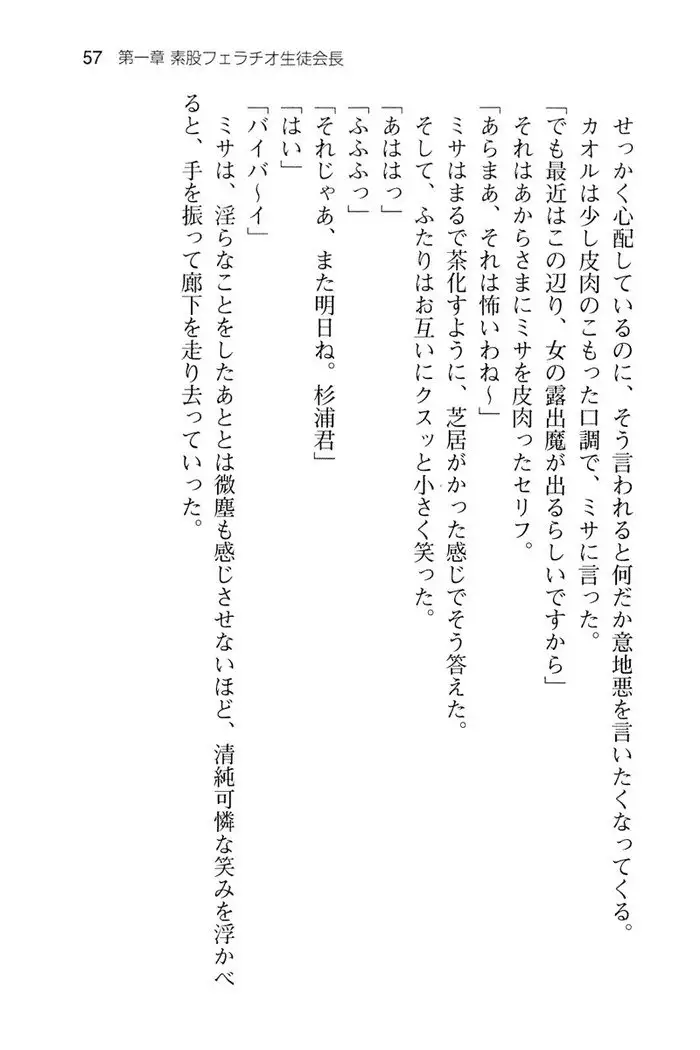 57 第一章 素股フェラチオ生徒会長
せっかく心配しているのに、そう言われると何だか意地悪を言いたくなってくる。
カオルは少し皮肉のこもった口調で、ミサに言った。
「でも最近はこの辺り、女の露出魔が出るらしいですから」
それはあからさまにミサを皮肉ったセリフ。
「あらまあ、それは怖いわね～」
ミサはまるで茶化すように、芝居がかった感じでそう答えた。
そして、ふたりはお互いにクスッと小さく笑った。
「あははっ」
「ふふふっ」
「それじゃあ、また明日ね。杉浦君」
「はい」
「バイバ～イ」
ミサは、淫らなことをしたあととは微塵も感じさせないほど、清純可憐な笑みを浮かべ
ると、手を振って廊下を走り去っていった。